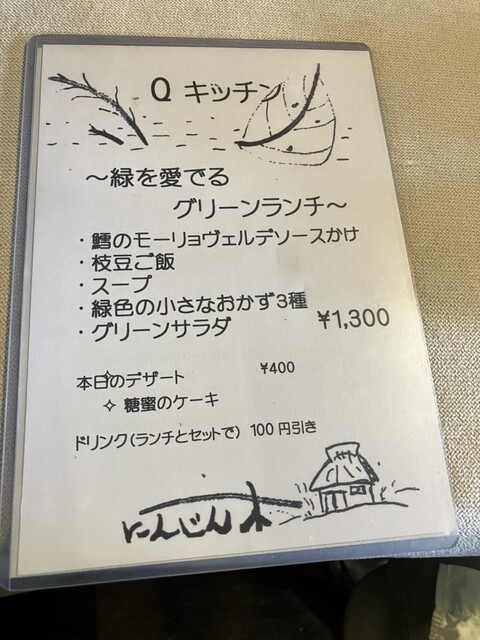 Q キッチン
～緑を愛でる
グリーンランチ～
・鱈のモーリョヴェルデソースかけ
・枝豆ご飯
・スープ
・緑色の小さなおかず3種
・グリーンサラダ
¥1,300
本日のデザート ¥400
✧ 糖蜜のケーキ
ドリンク(ランチとセットで) 100円引き
にんじん木